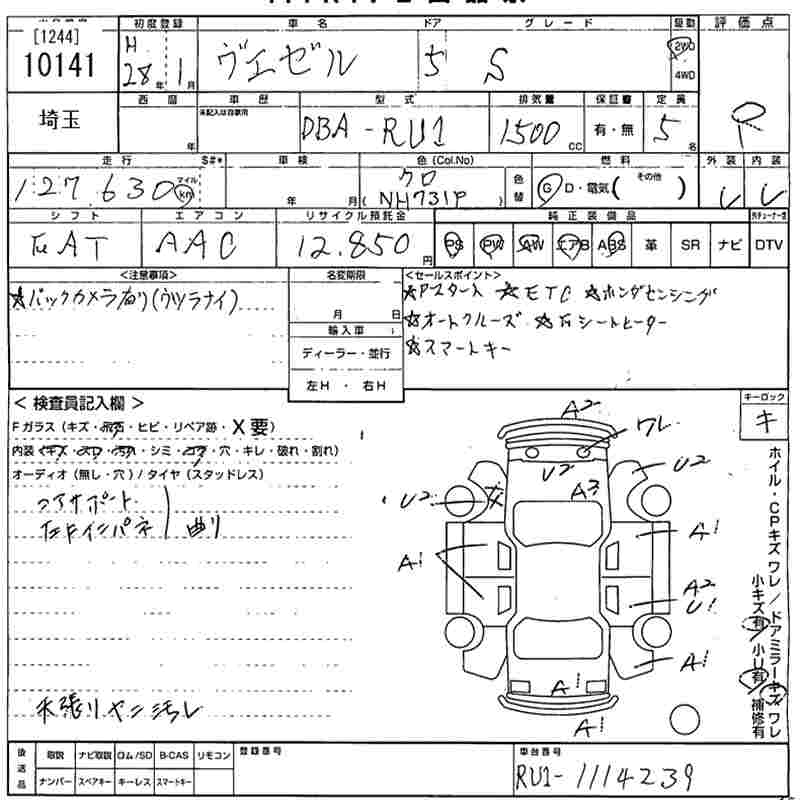 [1244]
10141
埼玉
初度登録 車名 ドア グレード 駆動 評価点
H 28年 1月 ヴェゼル 5 S 2WD 4WD
西暦 車歴 型式 排気量 保証書 定員
年 未記入は自家用 DBA-RU1 1500cc 有・無 5名
走行 S#* 車検 色(Col.No) 燃料 外装 内装
127,630 マイル km 年 月 クロ (NH731P) 色替 G D・電気( その他 )
シフト エアコン リサイクル預託金 純正装備品
AT AAC 12,850円 PS PW AW エアB ABS 革 SR ナビ DTV
<注意事項> 名変期限 <セールスポイント>
☆バックカメラ有り(ウツラナイ) 月 日 ☆Pスタート ☆ETC ☆ホンダセンシング
輸入車 ☆オートクルーズ ☆シートヒーター
ディーラー・並行 ☆スマートキー
左H ・ 右H
<検査員記入欄> キーロック
Fガラス(キズ・・ヒビ・リペア跡・X要) キ
内装(キズ・・・シミ・コゲ・穴・キレ・破れ・割れ)
オーディオ(無し・穴)/タイヤ(スタッドレス)
コアサポート
インパネ 曲り
天張りヤニ汚レ
A2 ワレ
U2 U2
U2 A3
A1 A1
A2
U1
A1
A1
A1
ホイル・CPキズ ワレ/ドアミラーキズ ワレ
小キズ有 小U有 補修有
後送品 取説 ナビ取説 ロム/SD B-CAS リモコン 登録番号 車台番号
ナンバー スペアキー キーレス スマートキー RU1-1114239